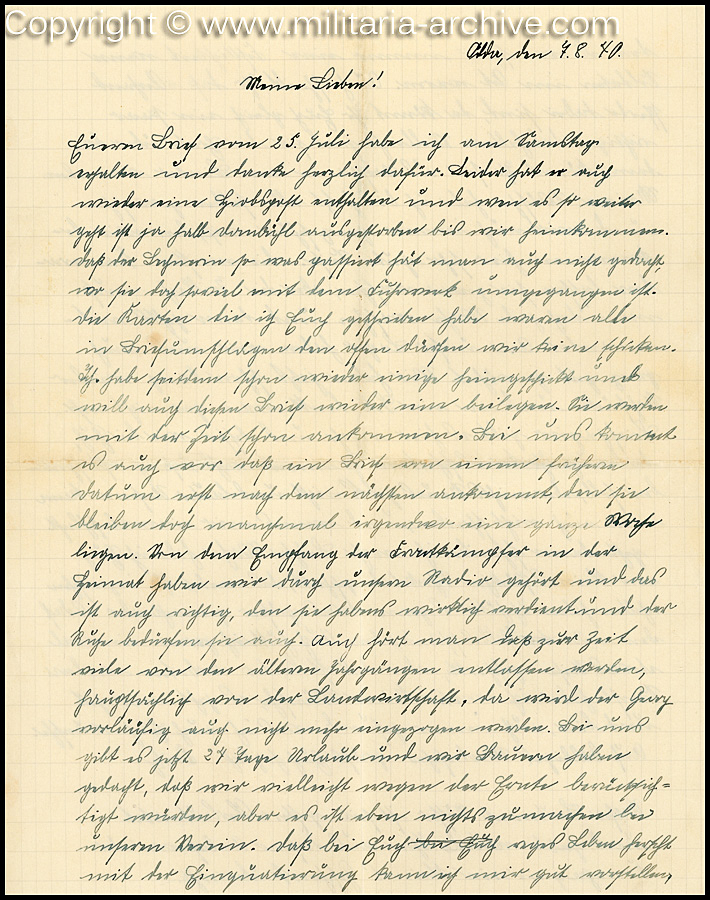 Copyright © www.militaria-archive.com
den 7.8.40.
Meine Lieben!
Eueren Brief vom 25. Juli habe ich am Samstag
erhalten und danke herzlich dafür. Leider hat er auch
wieder eine Hiobspost enthalten und wen es so weiter
geht ist ja halb ausgestorben bis wir heimkommen.
Daß der Lechnerin so was passiert hät man auch nicht gedacht,
wo sie doch soviel mit dem Fuhrwerk umgegangen ist.
Die Karten die ich Euch geschrieben habe waren alle
in Briefumschlägen den offen dürfen wir keine schicken.
Ich habe seitdem schon wieder einige heimgeschickt und
will auch diesen Brief wieder ein beilegen. Sie werden
mit der Zeit schon ankommen. Bei uns kommt
es auch vor daß ein Brief von einem früheren
Datum erst nach dem nächsten ankommt, den sie
bleiben doch manchmal irgendwo eine ganze Woche
liegen. Von dem Empfang der Frontkämpfer in der
Heimat haben wir durch unsern Radio gehört und das
ist auch richtig, den sie habens wirklich verdient und der
Ruhe bedürfen sie auch. Auch hört man daß zur Zeit
viele von den ältern Jahrgängen entlassen werden,
hauptsächlich von der Landwirtschaft, da wird der Georg
vorläufig auch nicht mehr eingezogen werden. Bei uns
gibt es jetzt 24 Tage Urlaub und wir Bauern haben
gedacht, daß wir vielleicht wegen der Ernte berücksich=
tigt würden, aber es ist eben nichts zumachen bei
unseren Verein. Daß bei Euch bei Euch reges Leben herscht
mit der Einquatierung kann ich mir gut vorstellen,